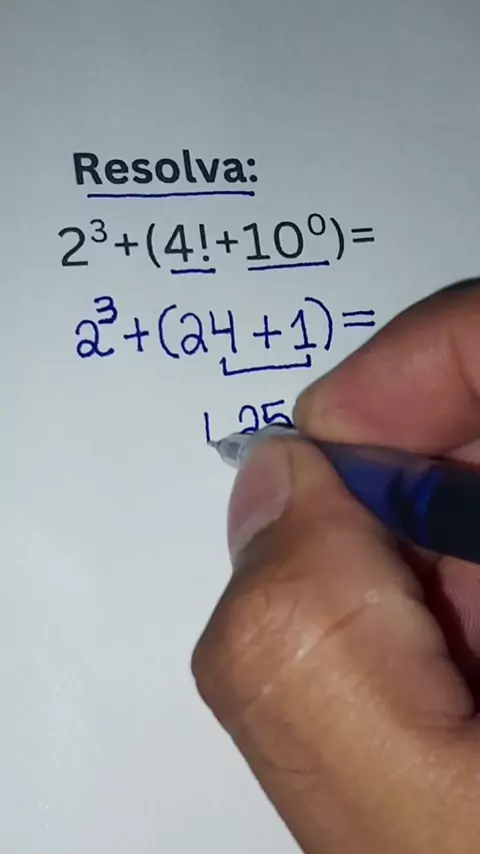 Resolva:
2³+(4!+10⁰)=
2³+(24+1)=
25